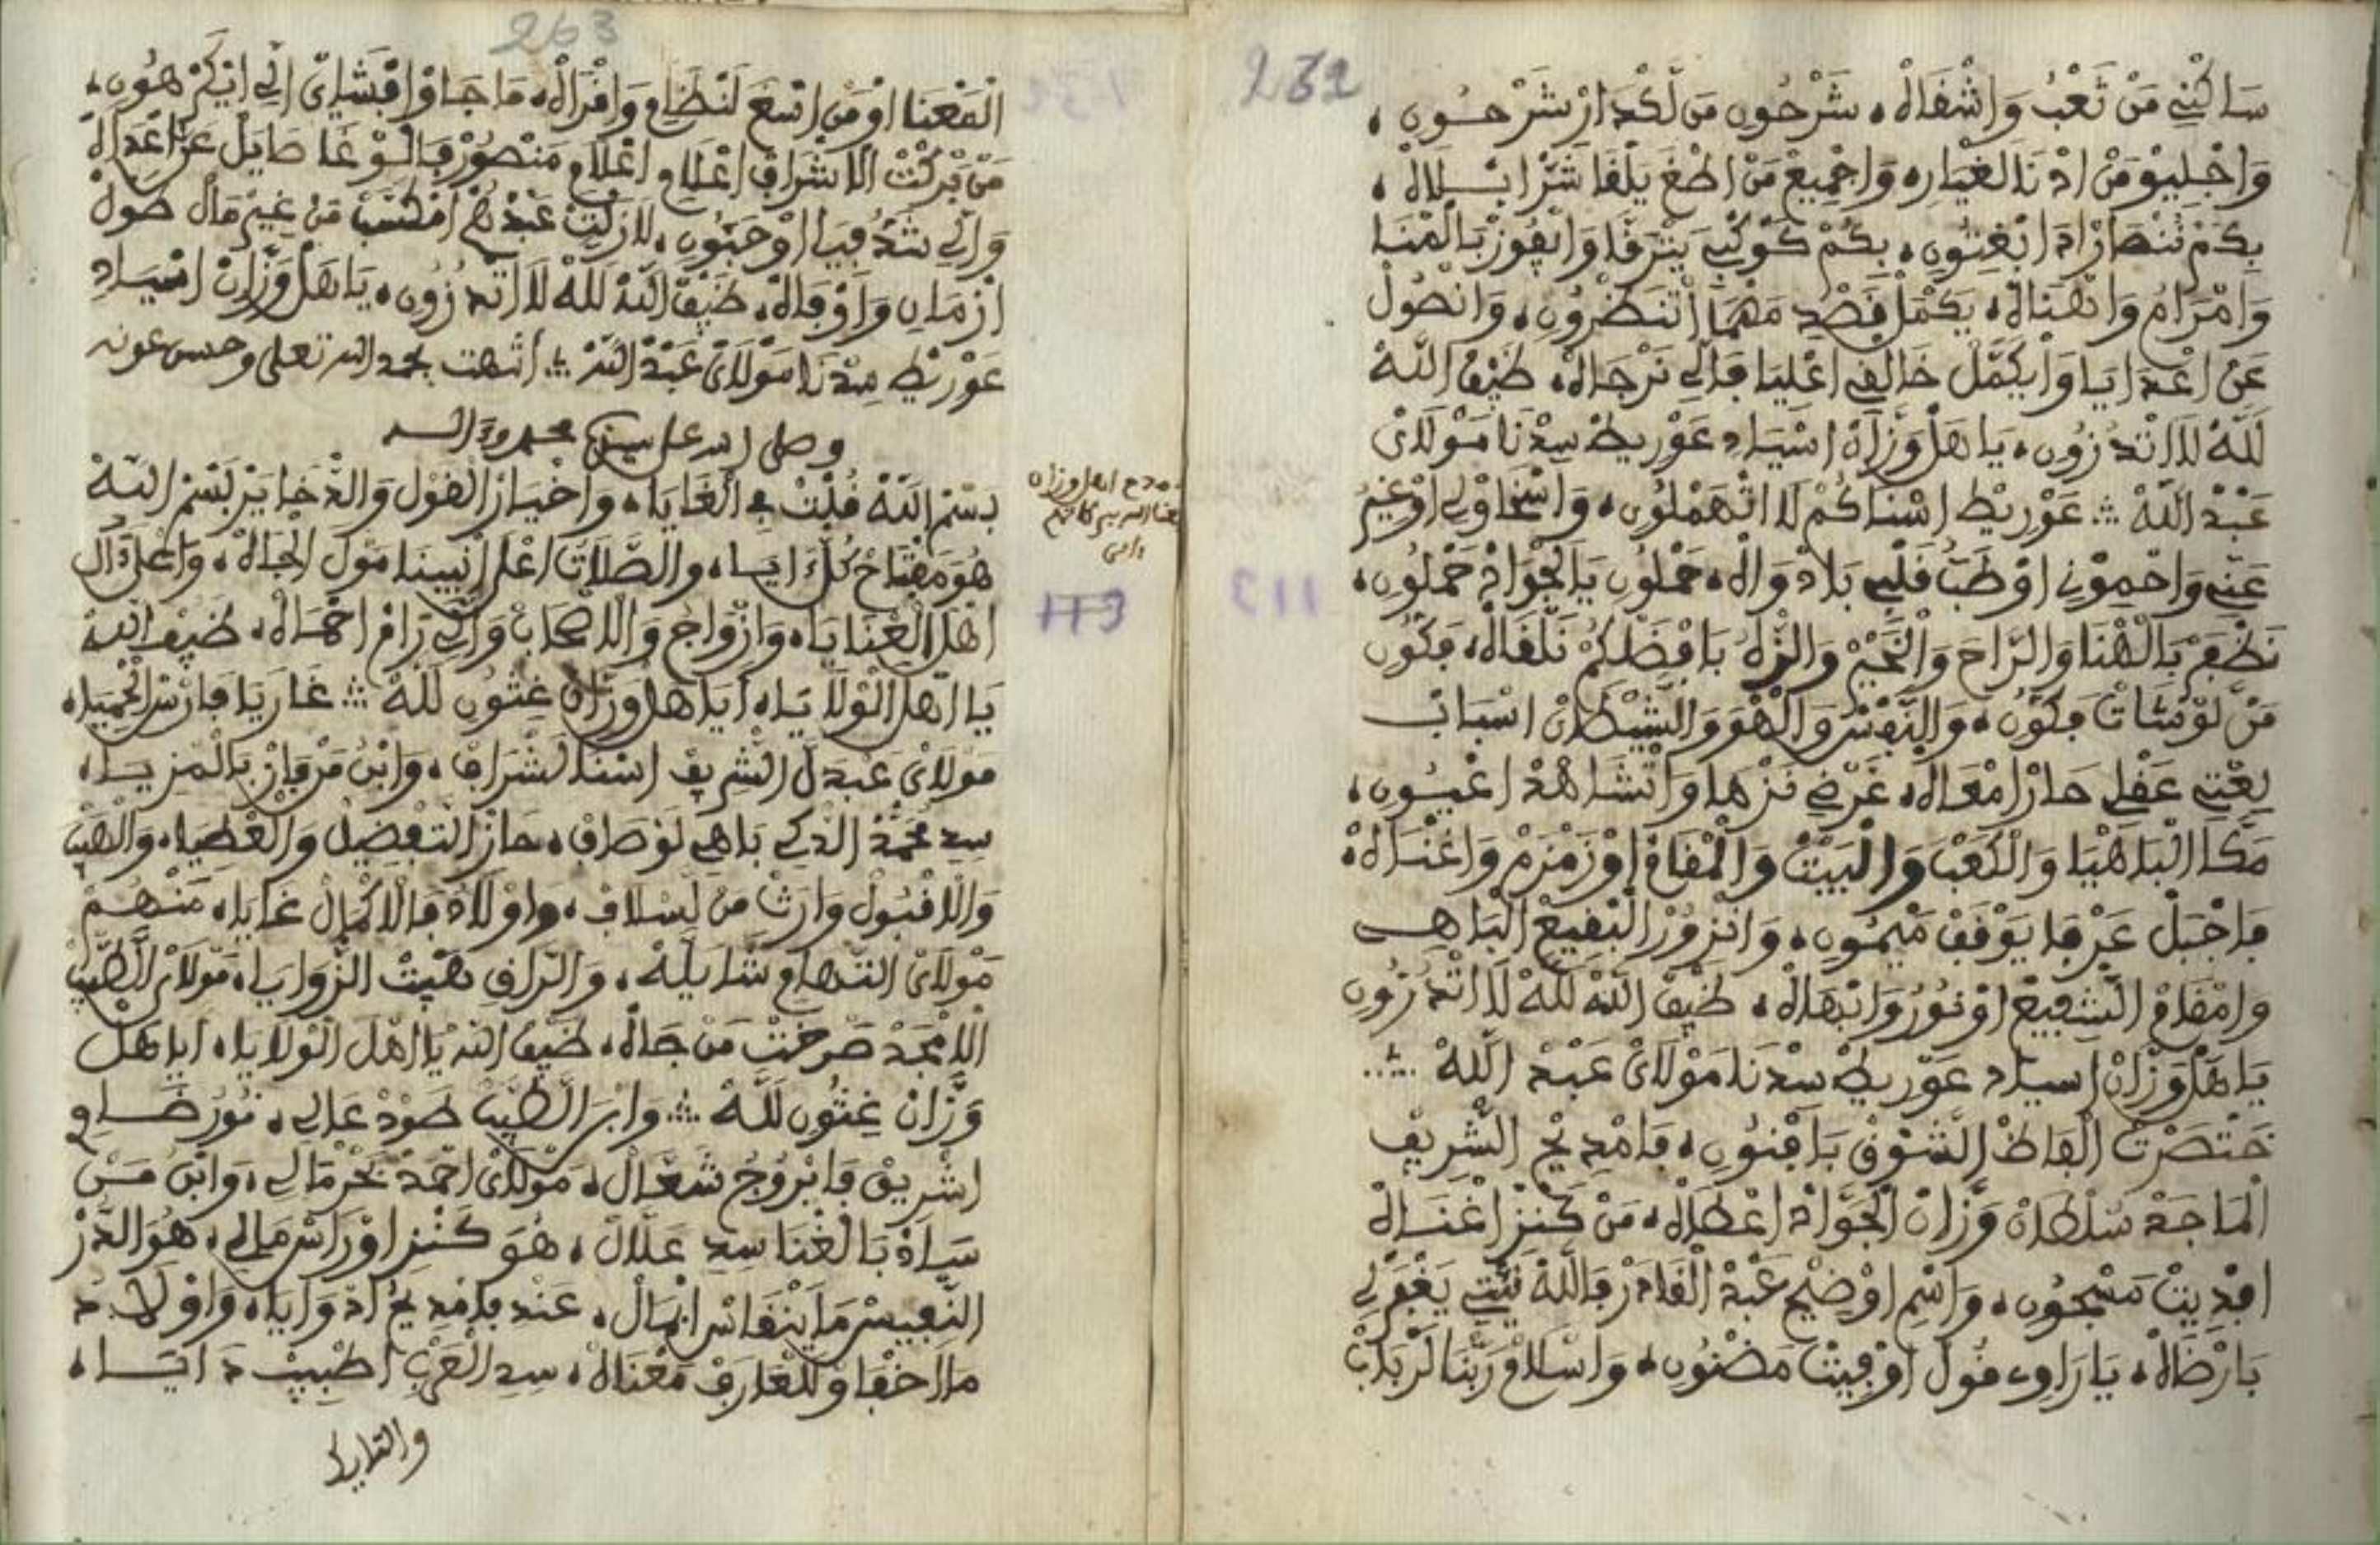 232
ساكني من تعب واشفاله، شرحون من لكدار شرحون،
واجليو من ادنا الغيار، واجميع من اطغ يلقا شر ابلاه،
بكم ننصار ادا نغتون، بكم كوكبي يترقا وانفوز بالمنا
وامرام وانهناله، يكمل قصد مهما اتنضرون، وانصول
عن اعدايا وايكمل خالفي اعليا فالي نرجاه، ضيف الله
لله لا اتدرون، ياهل وزان اسياد غوريط سدنا مولاي
عبد الله ؞ غوريط اسناكم لا اتهملون، واسخاولي اوغير
عني واحمون اوطب قلبي بلادواه، حملون يالجواد حملون،
نظفر بالهنا والراح والخير والزه بافضلكم نلقاه، فكون
من لونشات فكون، والنفس والهو والشيطان اسباب
بعتي عقلي حار امعاه، غرضي نزها وانشاهد اعيون،
مكا الباهيا والكعب والبيت والمقام اوزمزم واغناه،
فاجبل عرفا يوقف ميمون، وانزور البقيع الباهي
وامقام الشفيع اونور وابهاه، ضيف الله لله لا اتدرون
ياهل وزان اسياد غوريط سدنا مولاي عبد الله ؞
ختصرت الفاظ الشوق بافنون، فامديح الشريف
الماجد سلطان وزان الجواد اعطاه، من كنز اغناه
افديت مسجون، واسم اوضيح عبد القادر فالله نيتي يغفرلي
بارضاه، ياراوي قول اوفيت مضنون، واسلام ربنا لرباب
263
المعنا اومن اسع لنظام واقراه، ما جاو اقشاي الي ايكرهون،
من بركت الاشراف اعلام اعلام منصور فالوغا طايل عن اعداه
والي شد فيا اوحبون، لازلت عبدهم امكتب من غير مال طول
ازمان واوفاه، ضيف الله لله لا اتدرون، ياهل وزان اسياد
غوريط سدنا مولاي عبد الله ؞ انتهت بحمد الله تعلى وحسن عونه
وصلى الله على سيدنا محمد وءاله
بسم الله قلت في الغايا، واخيار القول والدخاير بسم الله
هو مفتاح كل ايا، والصلات اعل انبينا مول الجاه، واعل ال
اهل العنايا، وازواج والاصحاب والي رام احماه، ضيف الله
يا اهل الولايا، اياهل وزان غثون لله ؞ غاريا فارس الحميا،
مولاي عبدل الشريف اسنا لشراف، وابن مرفاز بالمزيا،
سد محمد الذكي باهي لوصاف، حاز التفضيل والعطيا، والهيب
والاقبول وارث من لسلاف، واولاد فالاكمال غايا، منهم
مولاي التهام شايله، والراف هيبت الزوايا، مولاي الطيب
الامجد صرختي من جاه، ضيف الله يا اهل الولايا، اياهل
وزان غثون لله ؞ وابن الطيب طود عالي، نور ضاو
اشريق فابروج شعال، مولاي احمد بحر مالي، وابن من
ساد بالغنا سد علال، هو كنز اوراس مالي، هو الدر
النفيس ما ينقاس ابمال، عند بامديح ادوايا، واولاد
ما اخفاو للعارف معناه، سد العرب اطبيب دايا،
والتايدا
مدح اهل وزان
113
113